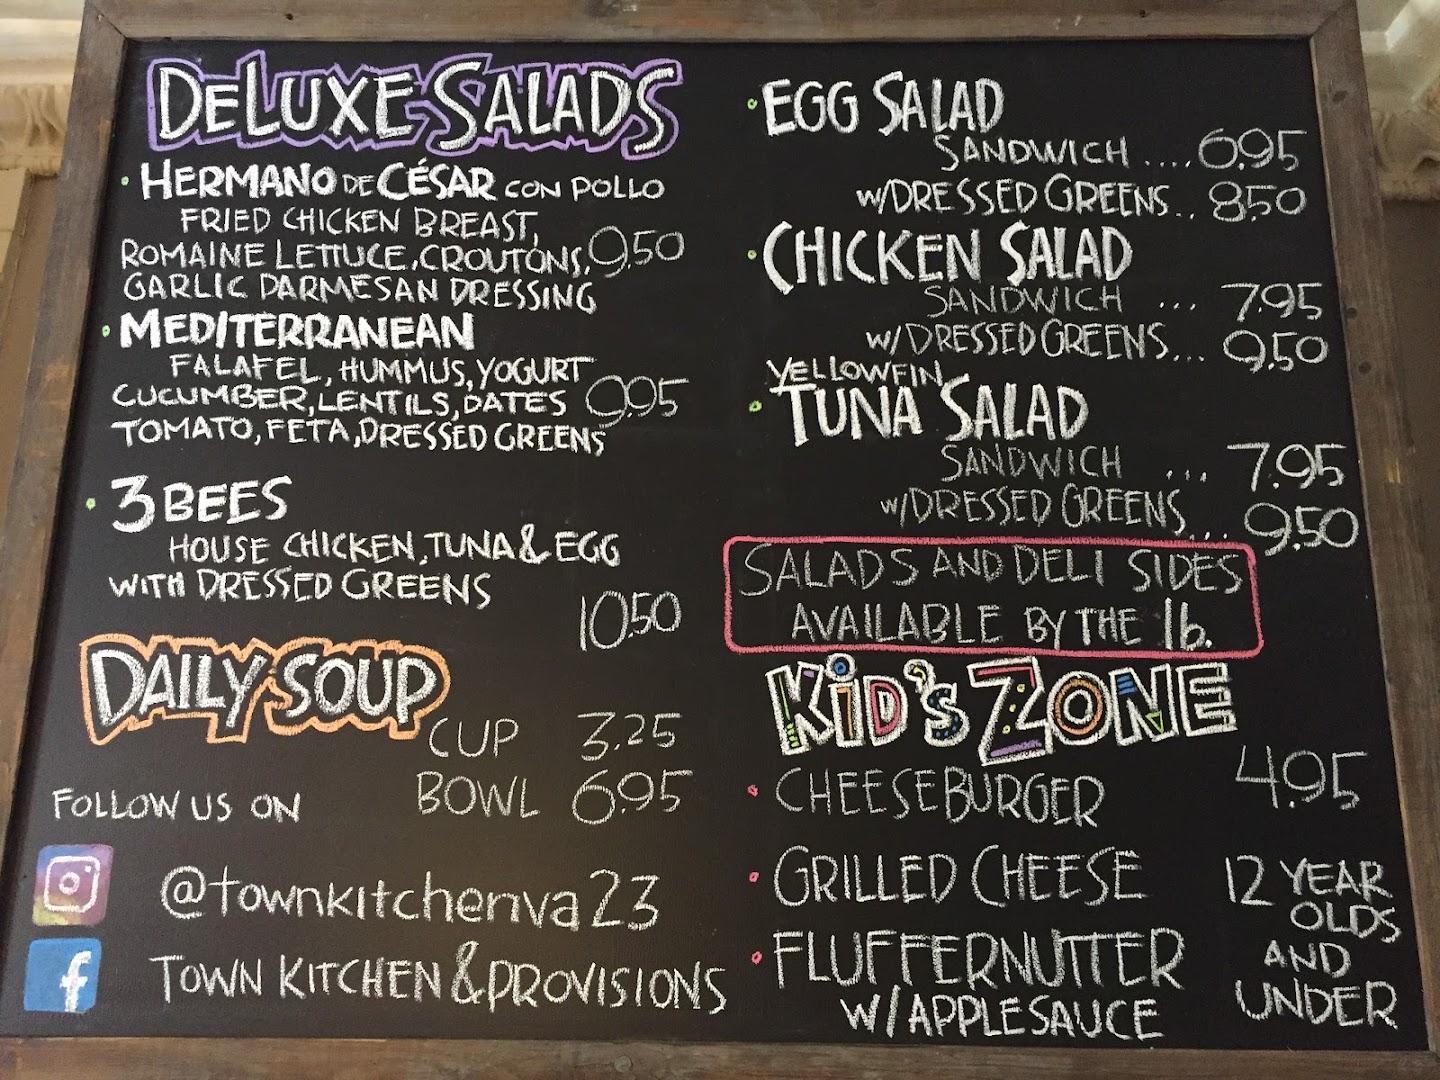 DELUXE SALADS
• HERMANO DE CÉSAR CON POLLO
FRIED CHICKEN BREAST,
ROMAINE LETTUCE, CROUTONS, 9.50
GARLIC PARMESAN DRESSING
• MEDITERRANEAN
FALAFEL, HUMMUS, YOGURT
CUCUMBER, LENTILS, DATES 9.95
TOMATO, FETA, DRESSED GREENS
• 3 BEES
HOUSE CHICKEN, TUNA & EGG
WITH DRESSED GREENS
10.50
DAILY SOUP
CUP 3.25
BOWL 6.95
FOLLOW US ON
@townkitchenva23
f
TOWN KITCHEN & PROVISIONS
• EGG SALAD
SANDWICH .... 6.95
W/DRESSED GREENS.. 8.50
• CHICKEN SALAD
SANDWICH ... 7.95
W/DRESSED GREENS... 9.50
YELLOWFIN
• TUNA SALAD
SANDWICH ... 7.95
W/DRESSED GREENS... 9.50
SALADS AND DELI SIDES
AVAILABLE BY THE lb.
KiD'S ZONE
• CHEESEBURGER 4.95
• GRILLED CHEESE
• FLUFFERNUTTER
W/APPLESAUCE
12 YEAR
OLDS
AND
UNDER